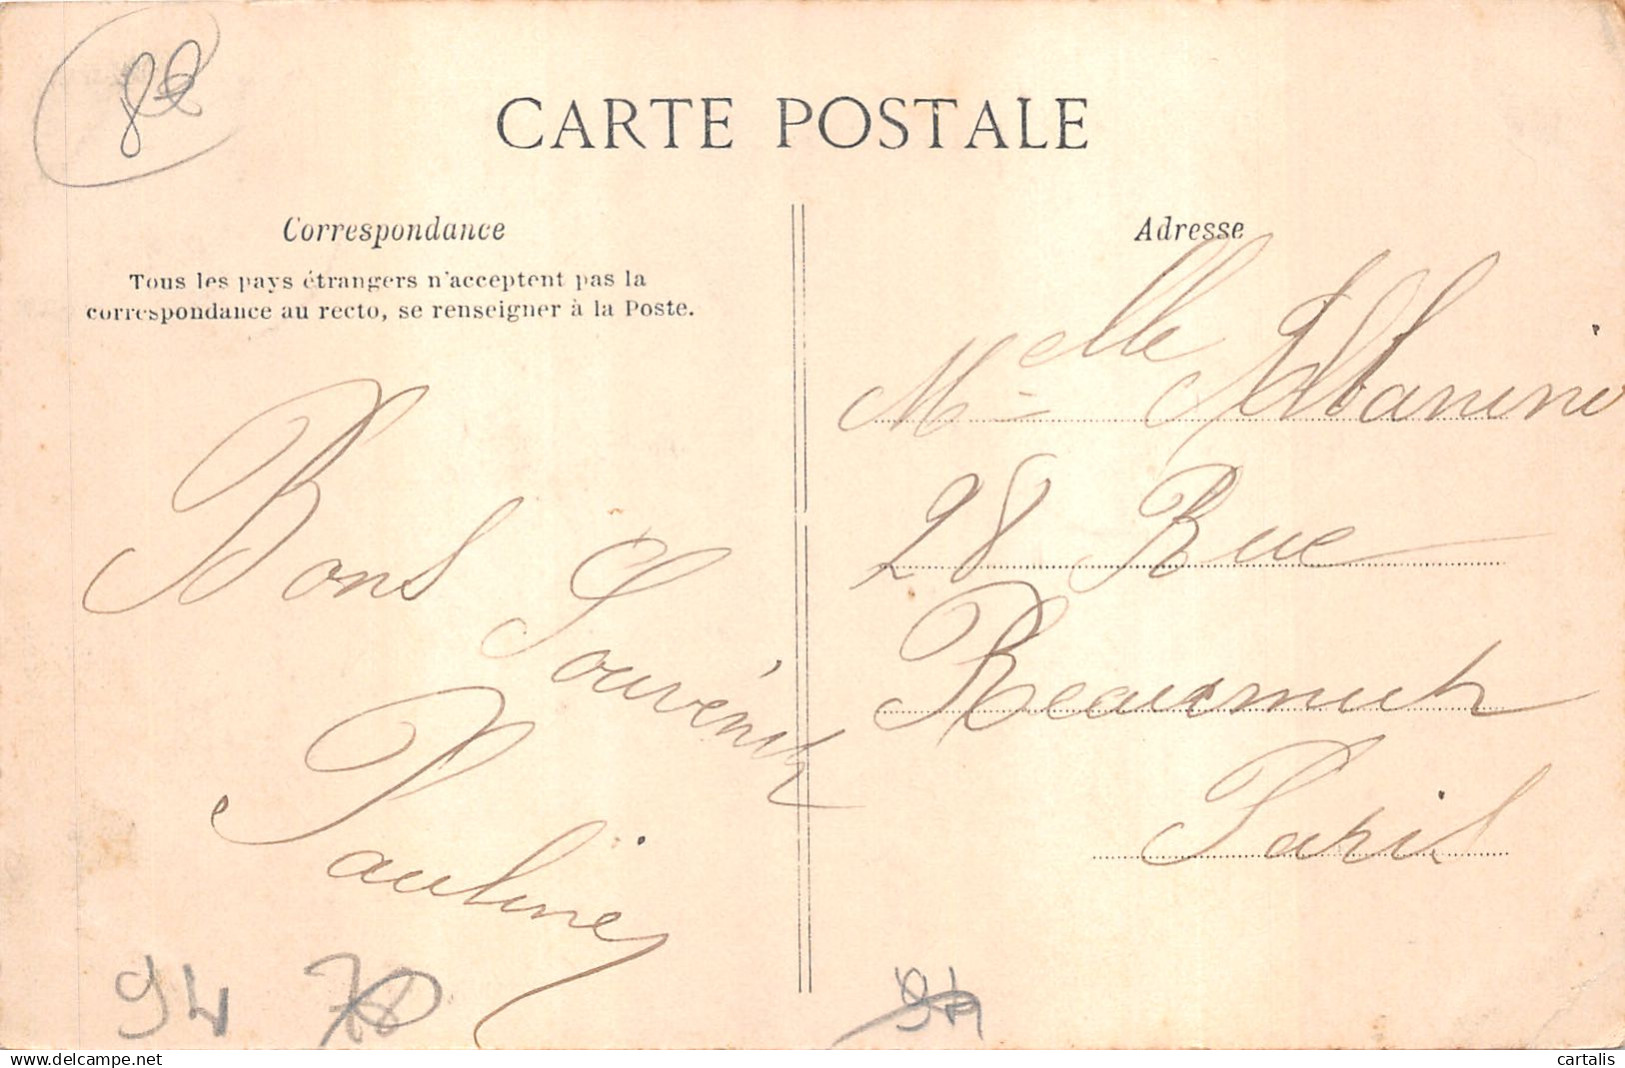 CARTE POSTALE
Correspondance
Tous les pays étrangers n'acceptent pas la
correspondance au recto, se renseigner à la Poste.
Bons
Souvénir
Pauline
94 78
Adresse
Melle Albanini
28 Rue
Reaumur
Paris
94
cartalis